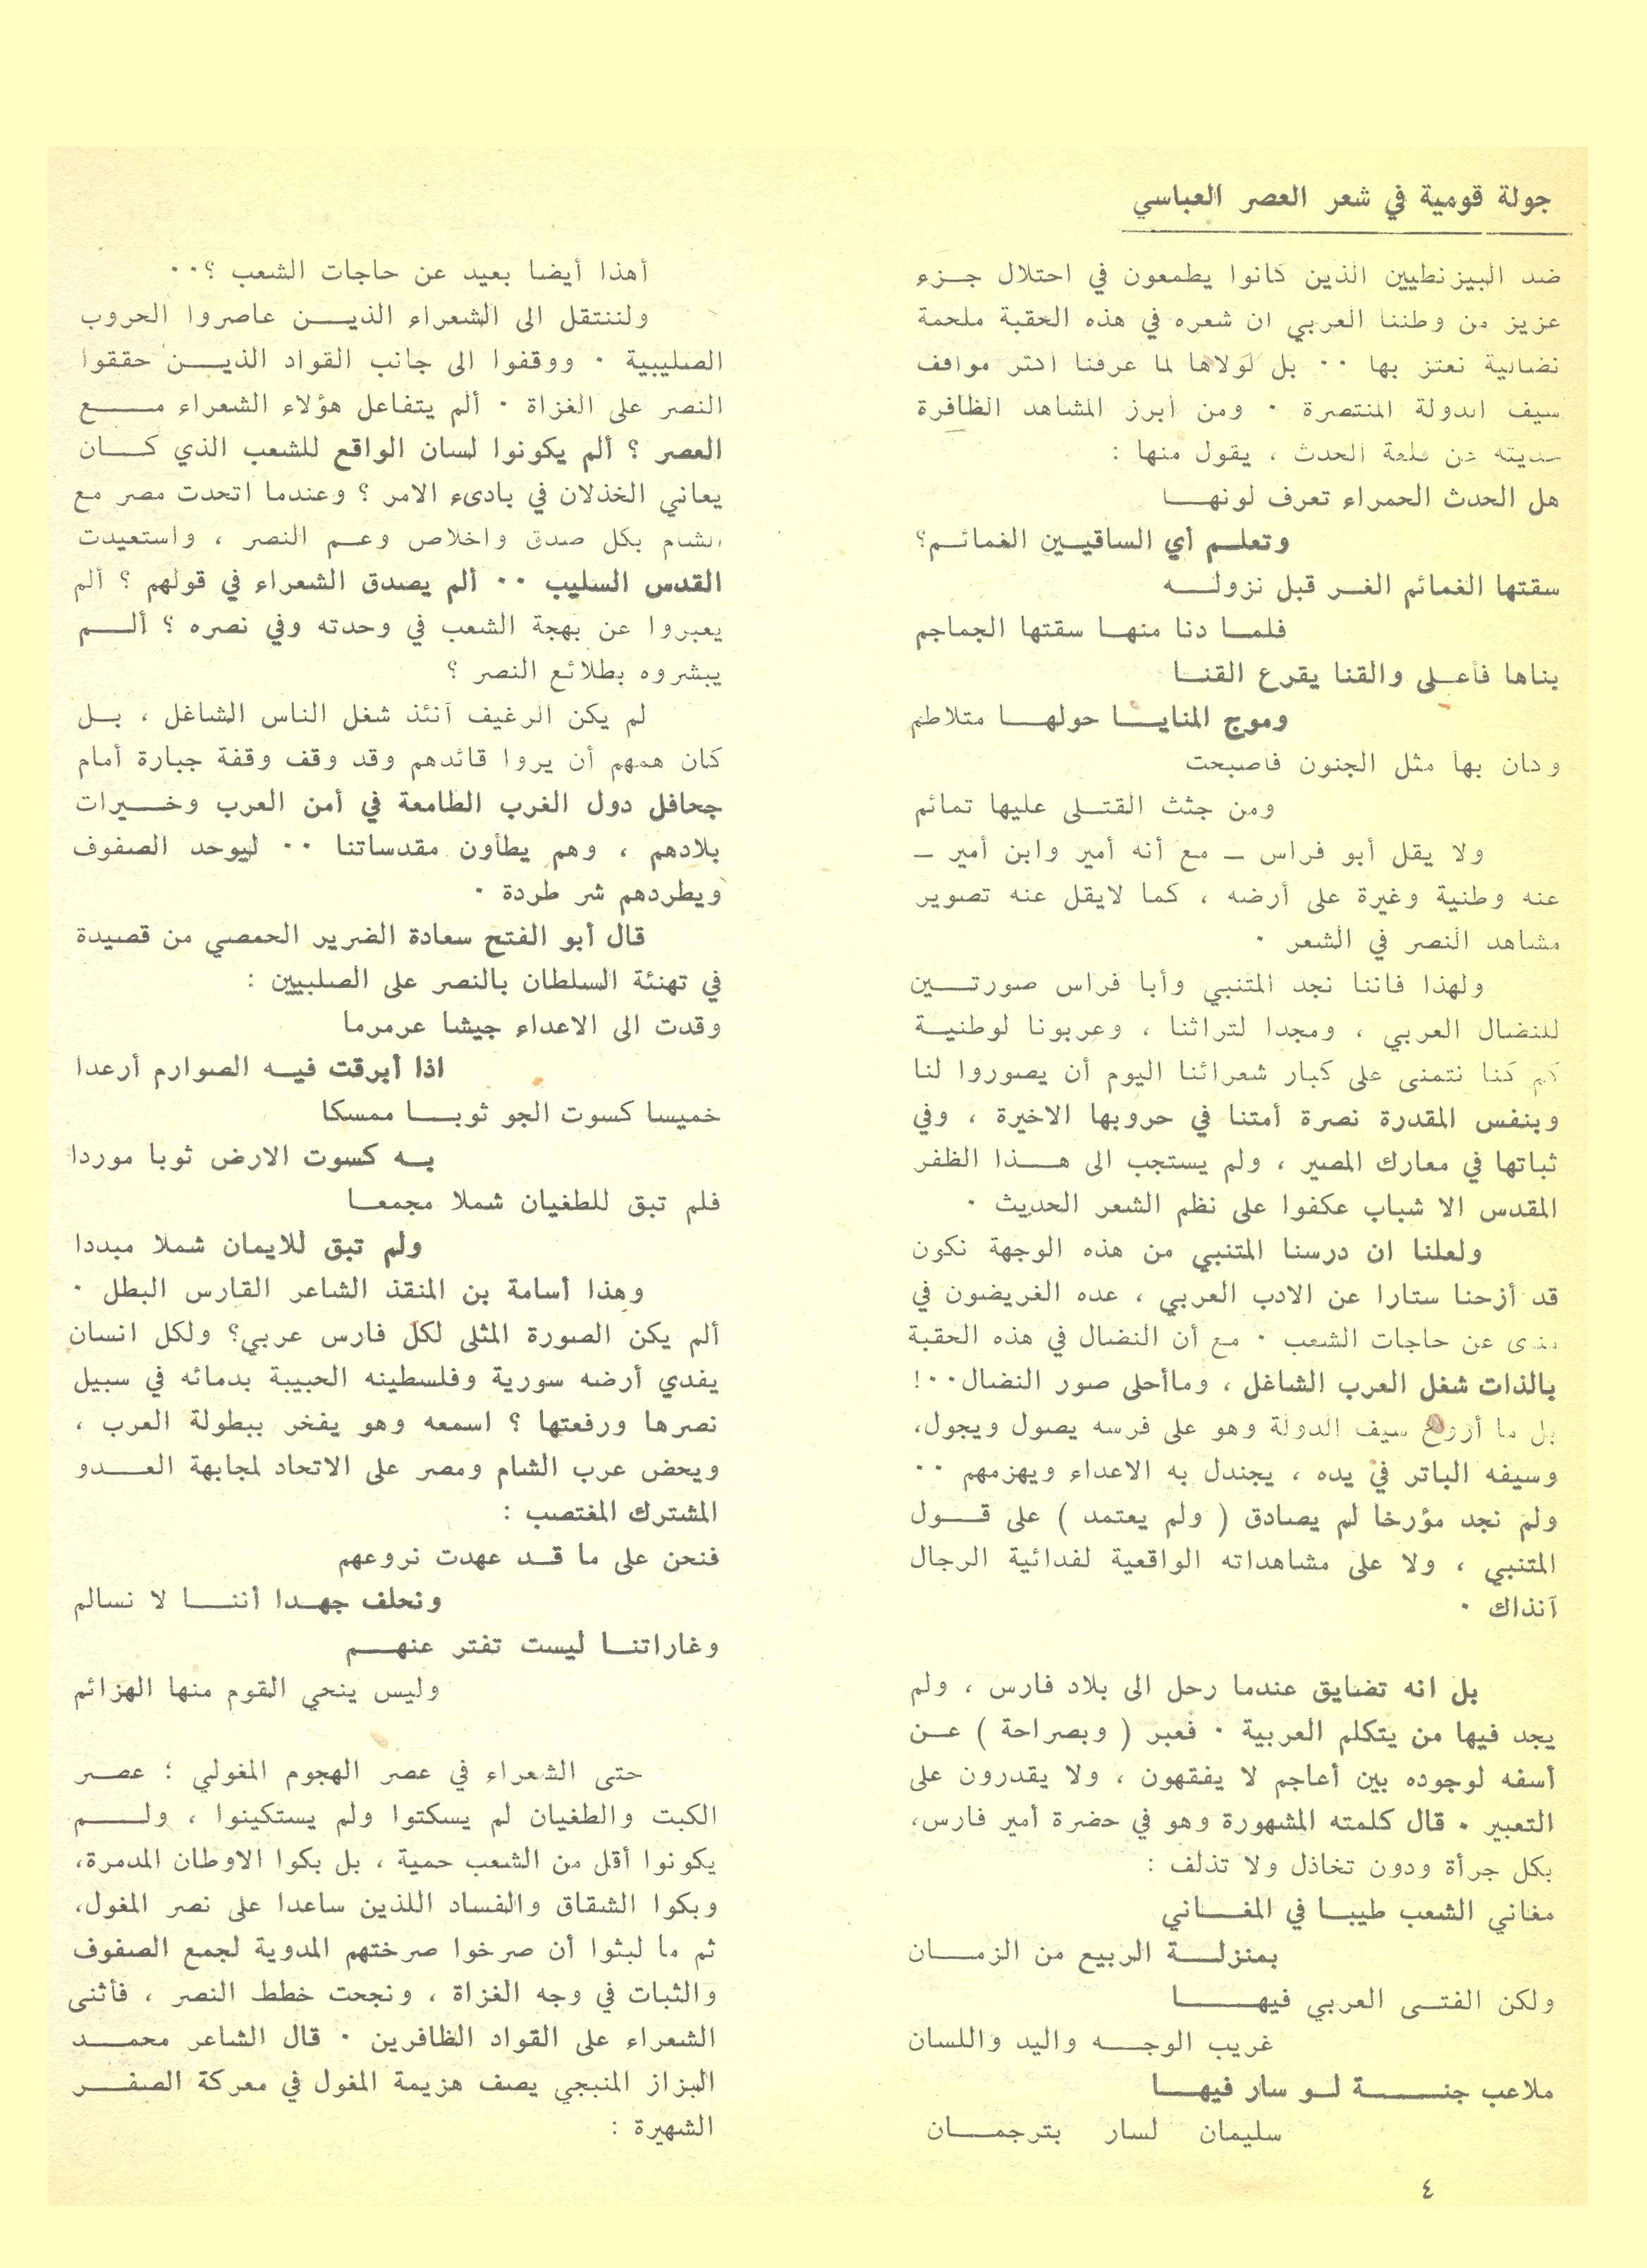 جولة قومية في شعر العصر العباسي
ضد البيزنطيين الذين كانوا يطمعون في احتلال جزء
عزيز من وطننا العربي ان شعره في هذه الحقبة ملحمة
نضالية نعتز بها ٠٠ بل لولاها لما عرفنا أكثر مواقف
سيف الدولة المنتصرة ٠ ومن أبرز المشاهد الظافرة
حديثه عن قلعة الحدث ، يقول منها :
هل الحدث الحمراء تعرف لونها
وتعلم أي الساقيين الغمائم؟
سقتها الغمائم الغر قبل نزوله
فلما دنا منها سقتها الجماجم
بناها فأعلى والقنا يقرع القنا
وموج المنايا حولها متلاطم
وكان بها مثل الجنون فأصبحت
ومن جثث القتلى عليها تمائم
ولا يقل أبو فراس – مع أنه أمير وابن أمير –
عنه وطنية وغيرة على أرضه ، كما لايقل عنه تصوير
مشاهد النصر في الشعر ٠
ولهذا فاننا نجد المتنبي وأبا فراس صورتين
للنضال العربي ، ومجدا لتراثنا ، وعربونا لوطنية
كم كنا نتمنى على كبار شعرائنا اليوم أن يصوروا لنا
وبنفس المقدرة نصرة أمتنا في حروبها الاخيرة ، وفي
ثباتها في معارك المصير ، ولم يستجب الى هذا الظفر
المقدس الا شباب عكفوا على نظم الشعر الحديث ٠
ولعلنا ان درسنا المتنبي من هذه الوجهة نكون
قد أزحنا ستارا عن الادب العربي ، عده الغريضون في
عن حاجات الشعب ٠ مع أن النضال في هذه الحقبة
بالذات شغل العرب الشاغل ، وماأحلى صور النضال٠٠!
بل ما أروع سيف الدولة وهو على فرسه يصول ويجول،
وسيفه الباتر في يده ، يجندل به الاعداء ويهزمهم ٠٠
ولم نجد مؤرخا لم يصادق ( ولم يعتمد ) على قول
المتنبي ، ولا على مشاهداته الواقعية لفدائية الرجال
آنذاك ٠
بل انه تضايق عندما رحل الى بلاد فارس ، ولم
يجد فيها من يتكلم العربية ٠ فعبر ( وبصراحة ) عن
أسفه لوجوده بين أعاجم لا يفقهون ، ولا يقدرون على
التعبير ٠ قال كلمته المشهورة وهو في حضرة أمير فارس،
بكل جرأة ودون تخاذل ولا تذلف :
مغاني الشعب طيبا في المغاني
بمنزلة الربيع من الزمان
ولكن الفتى العربي فيها
غريب الوجه واليد واللسان
ملاعب جنة لو سار فيها
سليمان لسار بترجمان
أهذا أيضا بعيد عن حاجات الشعب ؟٠٠
ولننتقل الى الشعراء الذين عاصروا الحروب
الصليبية ٠ ووقفوا الى جانب القواد الذين حققوا
النصر على الغزاة ٠ ألم يتفاعل هؤلاء الشعراء مع
العصر ؟ ألم يكونوا لسان الواقع للشعب الذي كان
يعاني الخذلان في بادىء الامر ؟ وعندما اتحدت مصر مع
الشام بكل صدق واخلاص وعم النصر ، واستعيدت
القدس السليب ٠٠ ألم يصدق الشعراء في قولهم ؟ ألم
يعبروا عن بهجة الشعب في وحدته وفي نصره ؟ ألم
يبشروه بطلائع النصر ؟
لم يكن الرغيف آنئذ شغل الناس الشاغل ، بل
كان همهم أن يروا قائدهم وقد وقف وقفة جبارة أمام
جحافل دول الغرب الطامعة في أمن العرب وخيرات
بلادهم ، وهم يطأون مقدساتنا ٠٠ ليوحد الصفوف
ويطردهم شر طردة ٠
قال أبو الفتح سعادة الضرير الحمصي من قصيدة
في تهنئة السلطان بالنصر على الصلبيين :
وقدت الى الاعداء جيشا عرمرما
اذا أبرقت فيه الصوارم أرعدا
خميسا كسوت الجو ثوبا ممسكا
به كسوت الارض ثوبا موردا
فلم تبق للطغيان شملا مجمعا
ولم تبق للايمان شملا مبددا
وهذا أسامة بن المنقذ الشاعر القارس البطل ٠
ألم يكن الصورة المثلى لكل فارس عربي؟ ولكل انسان
يفدي أرضه سورية وفلسطينه الحبيبة بدمائه في سبيل
نصرها ورفعتها ؟ اسمعه وهو يفخر ببطولة العرب ،
ويحض عرب الشام ومصر على الاتحاد لمجابهة العدو
المشترك المغتصب :
فنحن على ما قد عهدت نروعهم
ونحلف جهدا أننا لا نسالم
وغاراتنا ليست تفتر عنهم
وليس ينحي القوم منها الهزائم
حتى الشعراء في عصر الهجوم المغولي ؛ عصر
الكبت والطغيان لم يسكتوا ولم يستكينوا ، ولم
يكونوا أقل من الشعب حمية ، بل بكوا الاوطان المدمرة،
وبكوا الشقاق والفساد اللذين ساعدا على نصر المغول،
ثم ما لبثوا أن صرخوا صرختهم المدوية لجمع الصفوف
والثبات في وجه الغزاة ، ونجحت خطط النصر ، فأثنى
الشعراء على القواد الظافرين ٠ قال الشاعر محمد
البزاز المنبجي يصف هزيمة المغول في معركة الصفر
الشهيرة :
٤